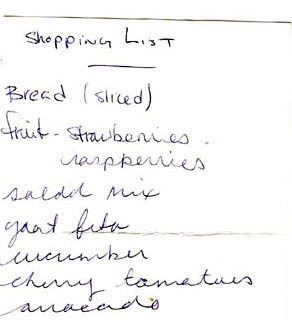 Shopping List
Bread (sliced)
fruit - strawberries
raspberries
salad mix
goat feta
cucumber
cherry tomatoes
avacado